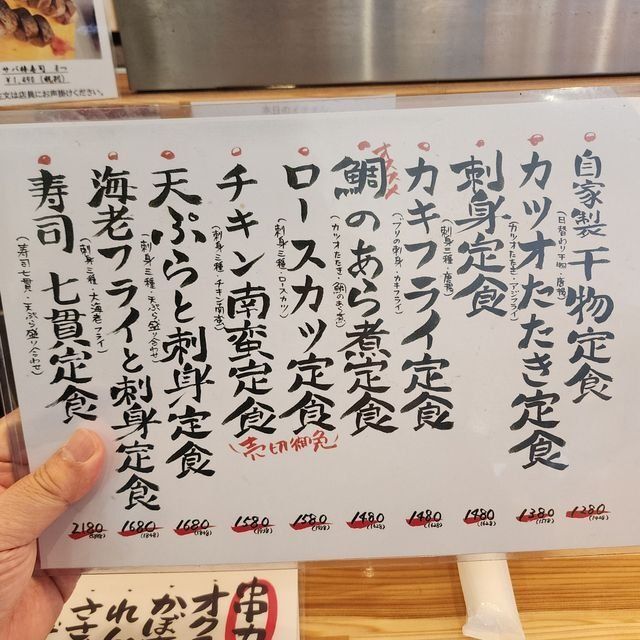 サバ棒寿司 5つ
¥1,490(税抜)
注文は店員にお声掛けください。
自家製干物定食
(日替わり干物・唐揚)
1280
カツオたたき定食
(カツオたたき・アジフライ)
1380
刺身定食
(刺身三種・唐揚)
1480
カキフライ定食
(ブリの刺身・カキフライ)
1480
オススメ
鯛のあら煮定食
(カツオたたき・鯛のあら煮)
1480
ロースカツ定食
(刺身三種・ロースカツ)
1580
チキン南蛮定食
(刺身三種・チキン南蛮)
1580
売切御免
天ぷらと刺身定食
(刺身三種・天ぷら盛り合わせ)
1680
海老フライと刺身定食
(刺身三種・大海老フライ)
1680
寿司七貫定食
(寿司七貫・天ぷら盛り合わせ)
2180
串カ
オクラ
かぼ
れん
ささ